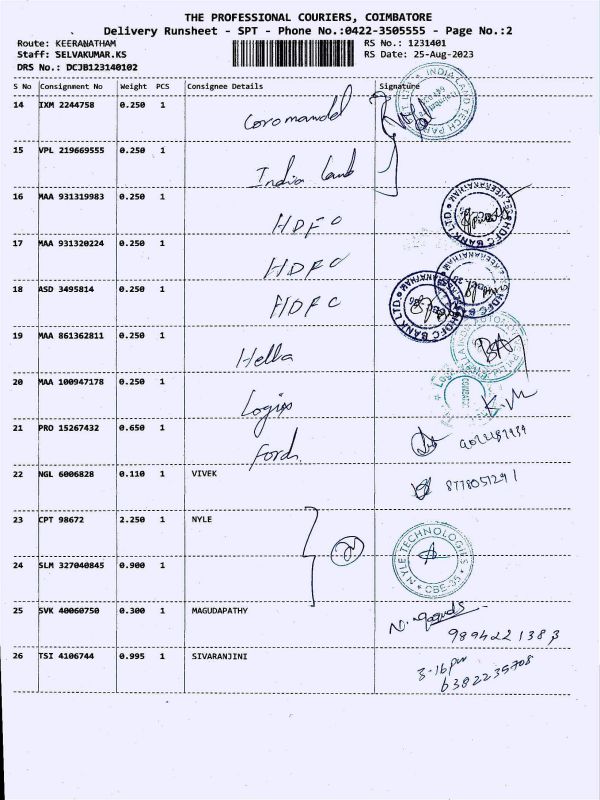 THE PROFESSIONAL COURIERS, COIMBATORE
Delivery Runsheet - SPT - Phone No.:0422-3505555 - Page No.:2
Route: KEERANATHAM RS No.: 1231401
Staff: SELVAKUMAR.KS RS Date: 25-Aug-2023
DRS No.: DCJB123140102
S No Consignment No Weight PCS Consignee Details Signature
14 IXM 2244758 0.250 1 Coromandel
15 VPL 219669555 0.250 1 India Land
16 MAA 931319983 0.250 1 HDFC
17 MAA 931320224 0.250 1 HDFC
18 ASD 3495814 0.250 1 HDFC
19 MAA 861362811 0.250 1 Hella
20 MAA 100947178 0.250 1 Logix
21 PRO 15267432 0.650 1 Ford
22 NGL 6006828 0.110 1 VIVEK 8778051291
23 CPT 98672 2.250 1 NYLE
NYLE TECHNOLOGIES
CBE-35
24 SLM 327040845 0.900 1
25 SVK 40060750 0.300 1 MAGUDAPATHY
9894221383
26 TSI 4106744 0.995 1 SIVARANJINI 3-16pm
6382235708